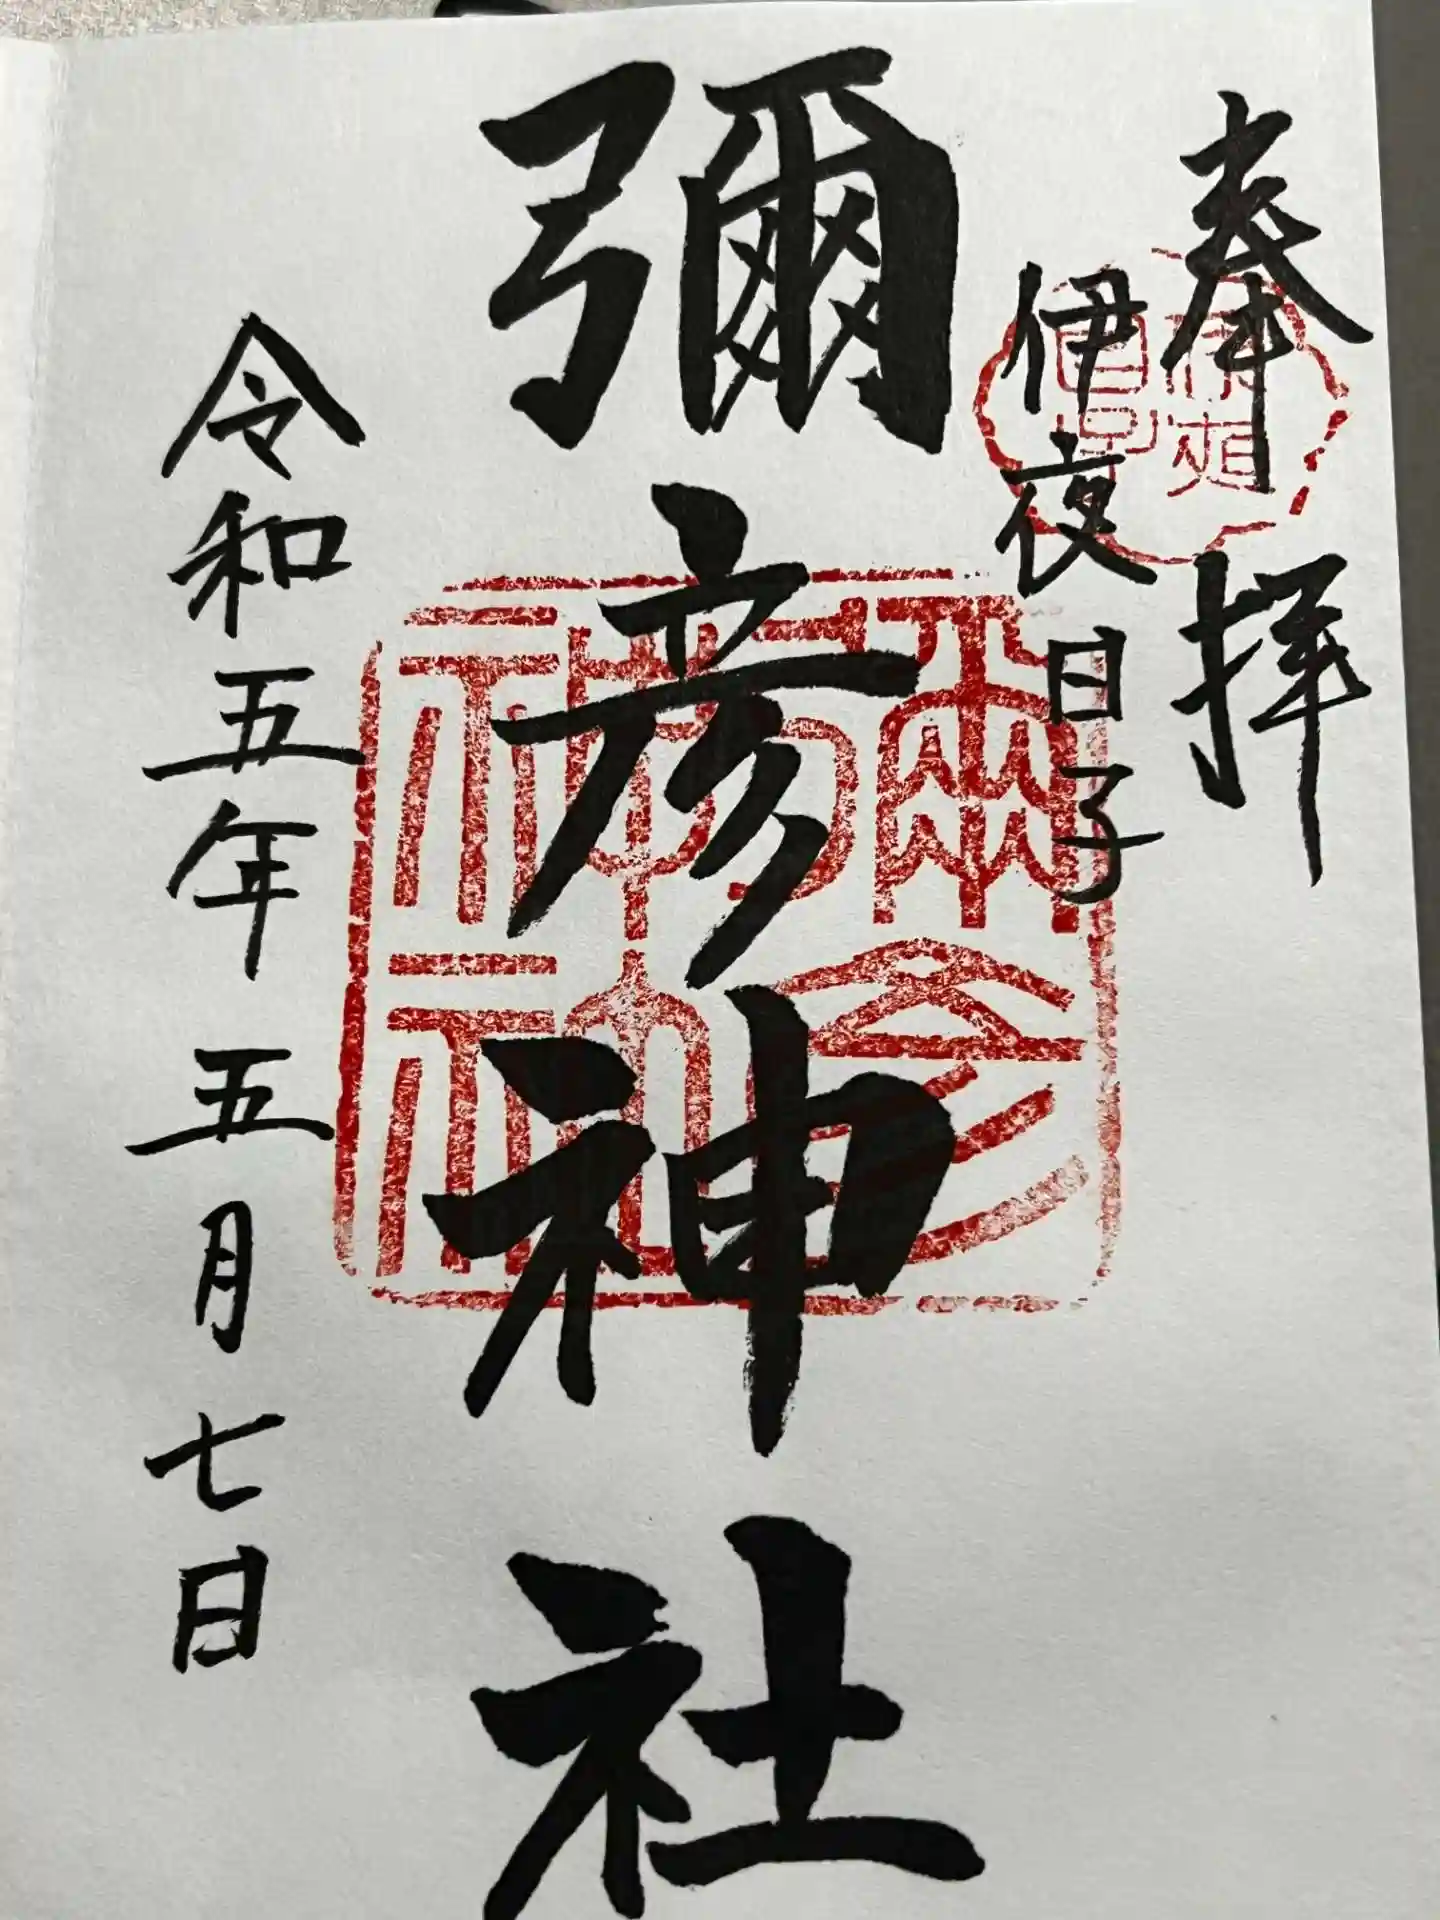 奉拝
伊夜日子
彌彦神社
令和五年五月七日
彌彦神社